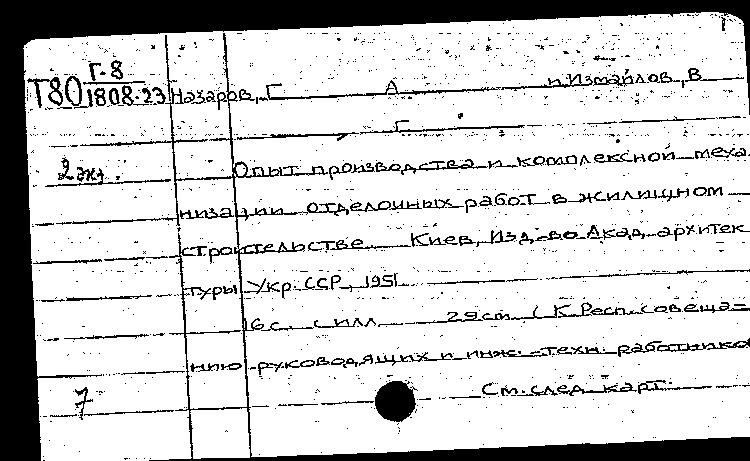 Г-8
Т80 1808-23 Назаров, Г А и Измайлов, В
Г.
2 экз. Опыт производства и комплексной меха
низации отделочных работ в жилищном
строительстве Киев, Изд-во Акад архитек
туры Укр. ССР, 1951.
16 с. с илл 29 cm (К Респ. совеща-
нию руководящих и инж-техн работнико
7 См. след карт.